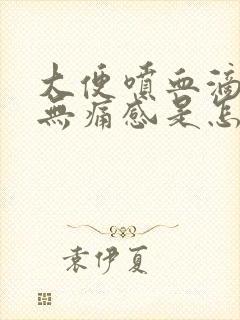 大便噴血滴
無痛感是怎
袁伊夏